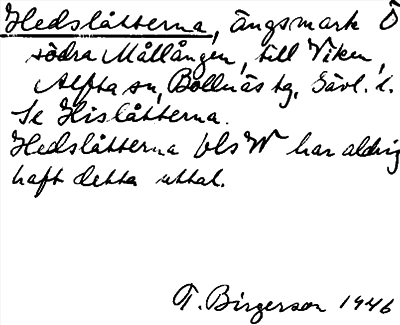 Hedslåtterna, ängsmark Ö
södra Mållången, till Viken,
Alfta sn, Bollnäs tg, Gävl. l.
Se Hislåtterna.
Hedslåtterna bls W har aldrig
haft detta uttal.
T. Birgerson 1946